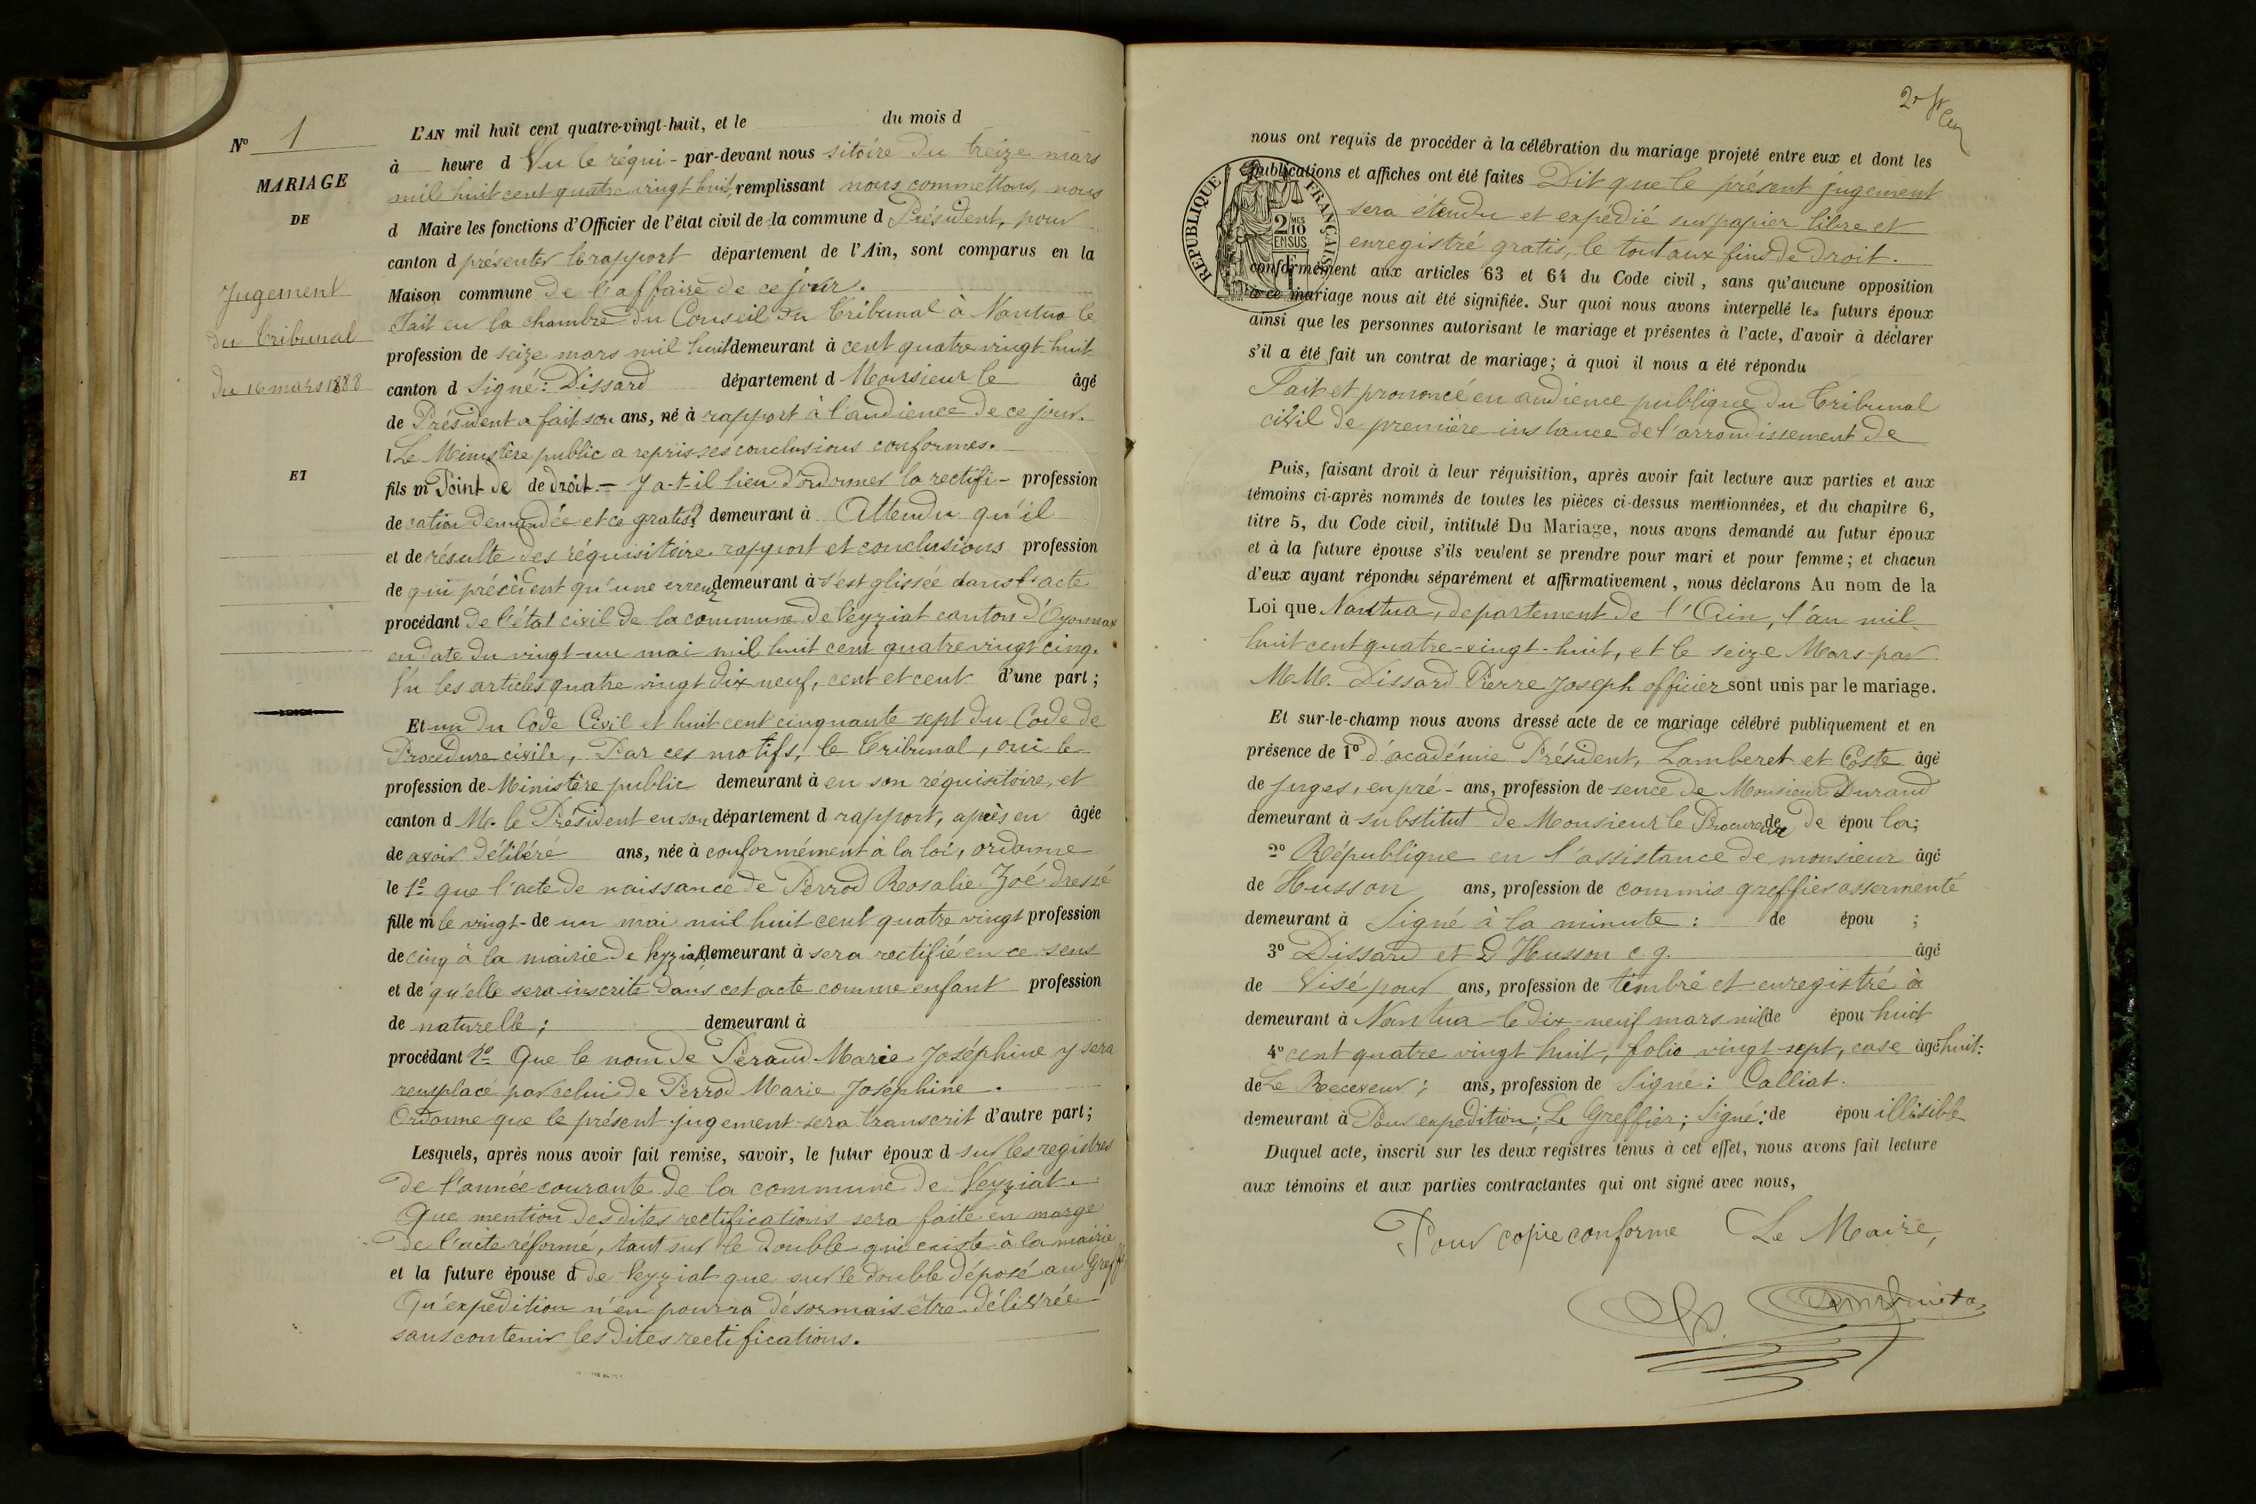 Nº 1
MARIAGE
DE
Jugement
du tribunal
du 16 mars 1888
ET
L'AN mil huit cent quatre-vingt-huit, et le du mois d
à heure d Vu le réqui- par-devant nous sitoire du treize mars
mil huit cent quatre vingt huit, remplissant nous commettons, nous
d Maire les fonctions d'Officier de l'état civil de la commune d Président, pour
canton d présenter le rapport département de l'Ain, sont comparus en la
Maison commune de l'affaire de ce jour.
Fait en la chambre du Conseil du Tribunal à Nantua le
profession de seize mars mil huit demeurant à cent quatre vingt-huit
canton d Signé: Dissard département d Monsieur le âgé
de Président a fait son ans, né à rapport à l'audience de ce jour.
Le Ministère public a repris ses conclusions conformes.
fils m Point de de droit.— Y a-t-il lieu d'ordonner la rectifi- profession
de cation demandée et ce gratis? demeurant à Attendu qu'il
et de résulte des réquisitoire rapport et conclusions profession
de qui précèdent qu'une erreur demeurant à s'est glissée dans l'acte
procédant de l'état civil de la commune de Veyziat canton d'Oyonnax
en date du vingt-un mai mil huit cent quatre vingt cinq.
Vu les articles quatre vingt dix neuf, cent et cent d'une part;
Et un du Code Civil et huit cent cinquante sept du Code de
Procédure civile, Par ces motifs, le Tribunal, oui le
profession de Ministère public demeurant à en son réquisitoire, et
canton d M. le Président en son département d rapport, après en âgée
de avoir délibéré ans, née à conformément à la loi, ordonne
le 1º que l'acte de naissance de Perrod Rosalie Zoé dressé
fille m le vingt- de un mai mil huit cent quatre vingt profession
de cinq à la mairie de Veyziat demeurant à sera rectifié en ce sens
et de qu'elle sera inscrite dans cet acte comme enfant profession
de naturelle; demeurant à
procédant 2º Que le nom de Peraud Marie Joséphine y sera
remplacé par celui de Perrod Marie Joséphine.
Ordonne que le présent jugement sera transcrit d'autre part;
Lesquels, après nous avoir fait remise, savoir, le futur époux d sur les registres
de l'année courante de la commune de Veyziat.
Que mention des dites rectifications sera faite en marge
de l'acte réformé, tant sur le double qui existe à la mairie
et la future épouse d de Veyziat que sur le double déposé au Greffe
Qu'expédition n'en pourra désormais être délivrée
sans contenir les dites rectifications.
nous ont requis de procéder à la célébration du mariage projeté entre eux et dont les
publications et affiches ont été faites Dit que le présent jugement
sera étendu et expédié sur papier libre et
enregistré gratis, le tout aux fins de droit.
RÉPUBLIQUE FRANÇAISE
2 MES
10
EN SUS
conformément aux articles 63 et 64 du Code civil, sans qu'aucune opposition
à ce mariage nous ait été signifiée. Sur quoi nous avons interpellé les futurs époux
ainsi que les personnes autorisant le mariage et présentes à l'acte, d'avoir à déclarer
s'il a été fait un contrat de mariage; à quoi il nous a été répondu
Fait et prononcé en audience publique du Tribunal
civil de première instance de l'arrondissement de
Puis, faisant droit à leur réquisition, après avoir fait lecture aux parties et aux
témoins ci-après nommés de toutes les pièces ci-dessus mentionnées, et du chapitre 6,
titre 5, du Code civil, intitulé Du Mariage, nous avons demandé au futur époux
et à la future épouse s'ils veulent se prendre pour mari et pour femme; et chacun
d'eux ayant répondu séparément et affirmativement, nous déclarons Au nom de la
Loi que Nantua, departement de l'Ain, l'an mil
huit cent quatre-vingt-huit, et le seize Mars par
M.M. Dissard Pierre Joseph officier sont unis par le mariage.
Et sur-le-champ nous avons dressé acte de ce mariage célébré publiquement et en
présence de 1º d'académie Président, Lamberet et Coste âgé
de juges, en pré- ans, profession de sence de Monsieur Durand
demeurant à substitut de Monsieur le Procureur de de épou la;
2º République en l'assistance de monsieur âgé
de Husson ans, profession de commis greffier assermenté
demeurant à Signé à la minute: de épou ;
3º Dissard et Husson c.g. âgé
de Visé pour ans, profession de timbré et enregistré à
demeurant à Nantua le dix-neuf mars mil de épou huit
4º cent quatre vingt huit, folio vingt-sept, case âgé huit:
de Le Receveur; ans, profession de Signé: Calliat.
demeurant à Pour expédition; Le Greffier; Signé: de épou illisible
Duquel acte, inscrit sur les deux registres tenus à cet effet, nous avons fait lecture
aux témoins et aux parties contractantes qui ont signé avec nous,
Pour copie conforme Le Maire,